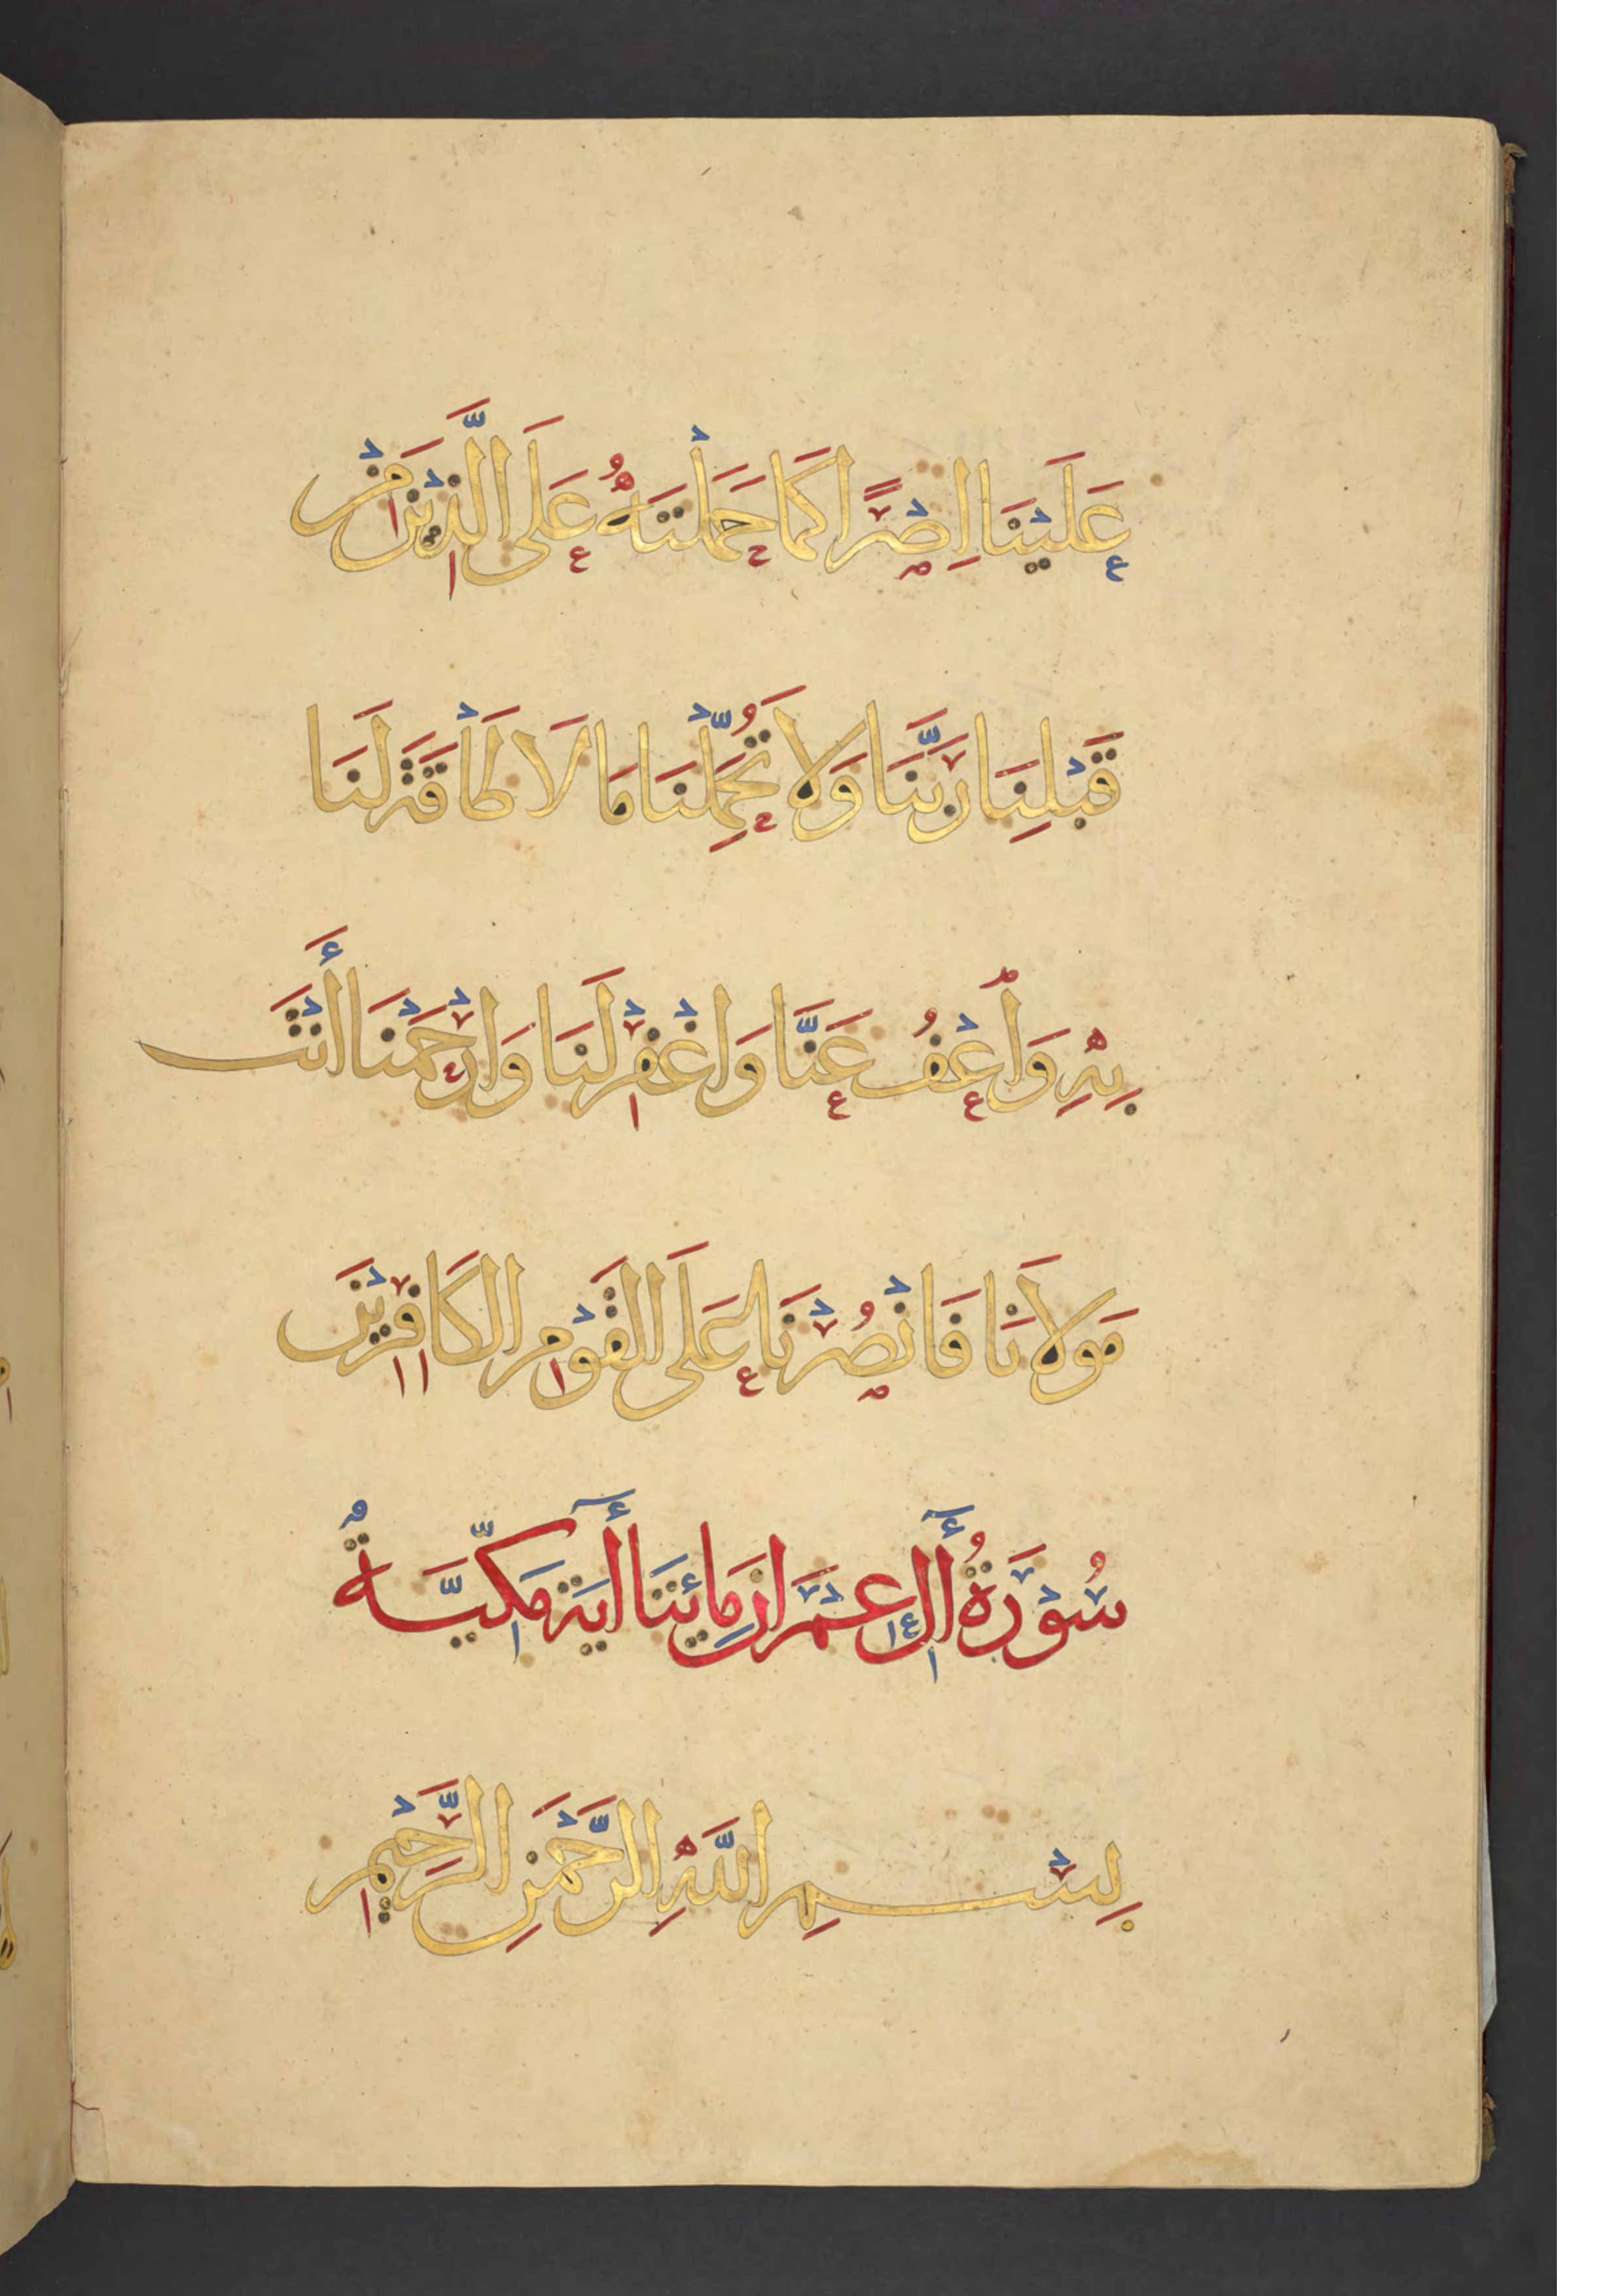 عَلَيْنَا اِصْرًا كَمَا حَمَلْتَهُ عَلَى الَّذِيْنَ مِنْ
قَبْلِنَا رَبَّنَا وَلَا تُحَمِّلْنَا مَا لَا طَاْقَةَ لَنَا
بِهِ وَاُعْفُ عَنَّا وَاغْفِرْ لَنَا وَارْحَمْنَا أَنْتَ
مَولَانَا فَانْصُرْنَا عَلَى القَوْمِ الكَافِرِيْنَ
سُوْرَةُ أٓلِ عِمْرَان مِائَتَا أٓيَة مَكِّيَّةٌ
بِسْمِ اللَّهِ الرَّحْمَنِ الرَّحِيْمِ